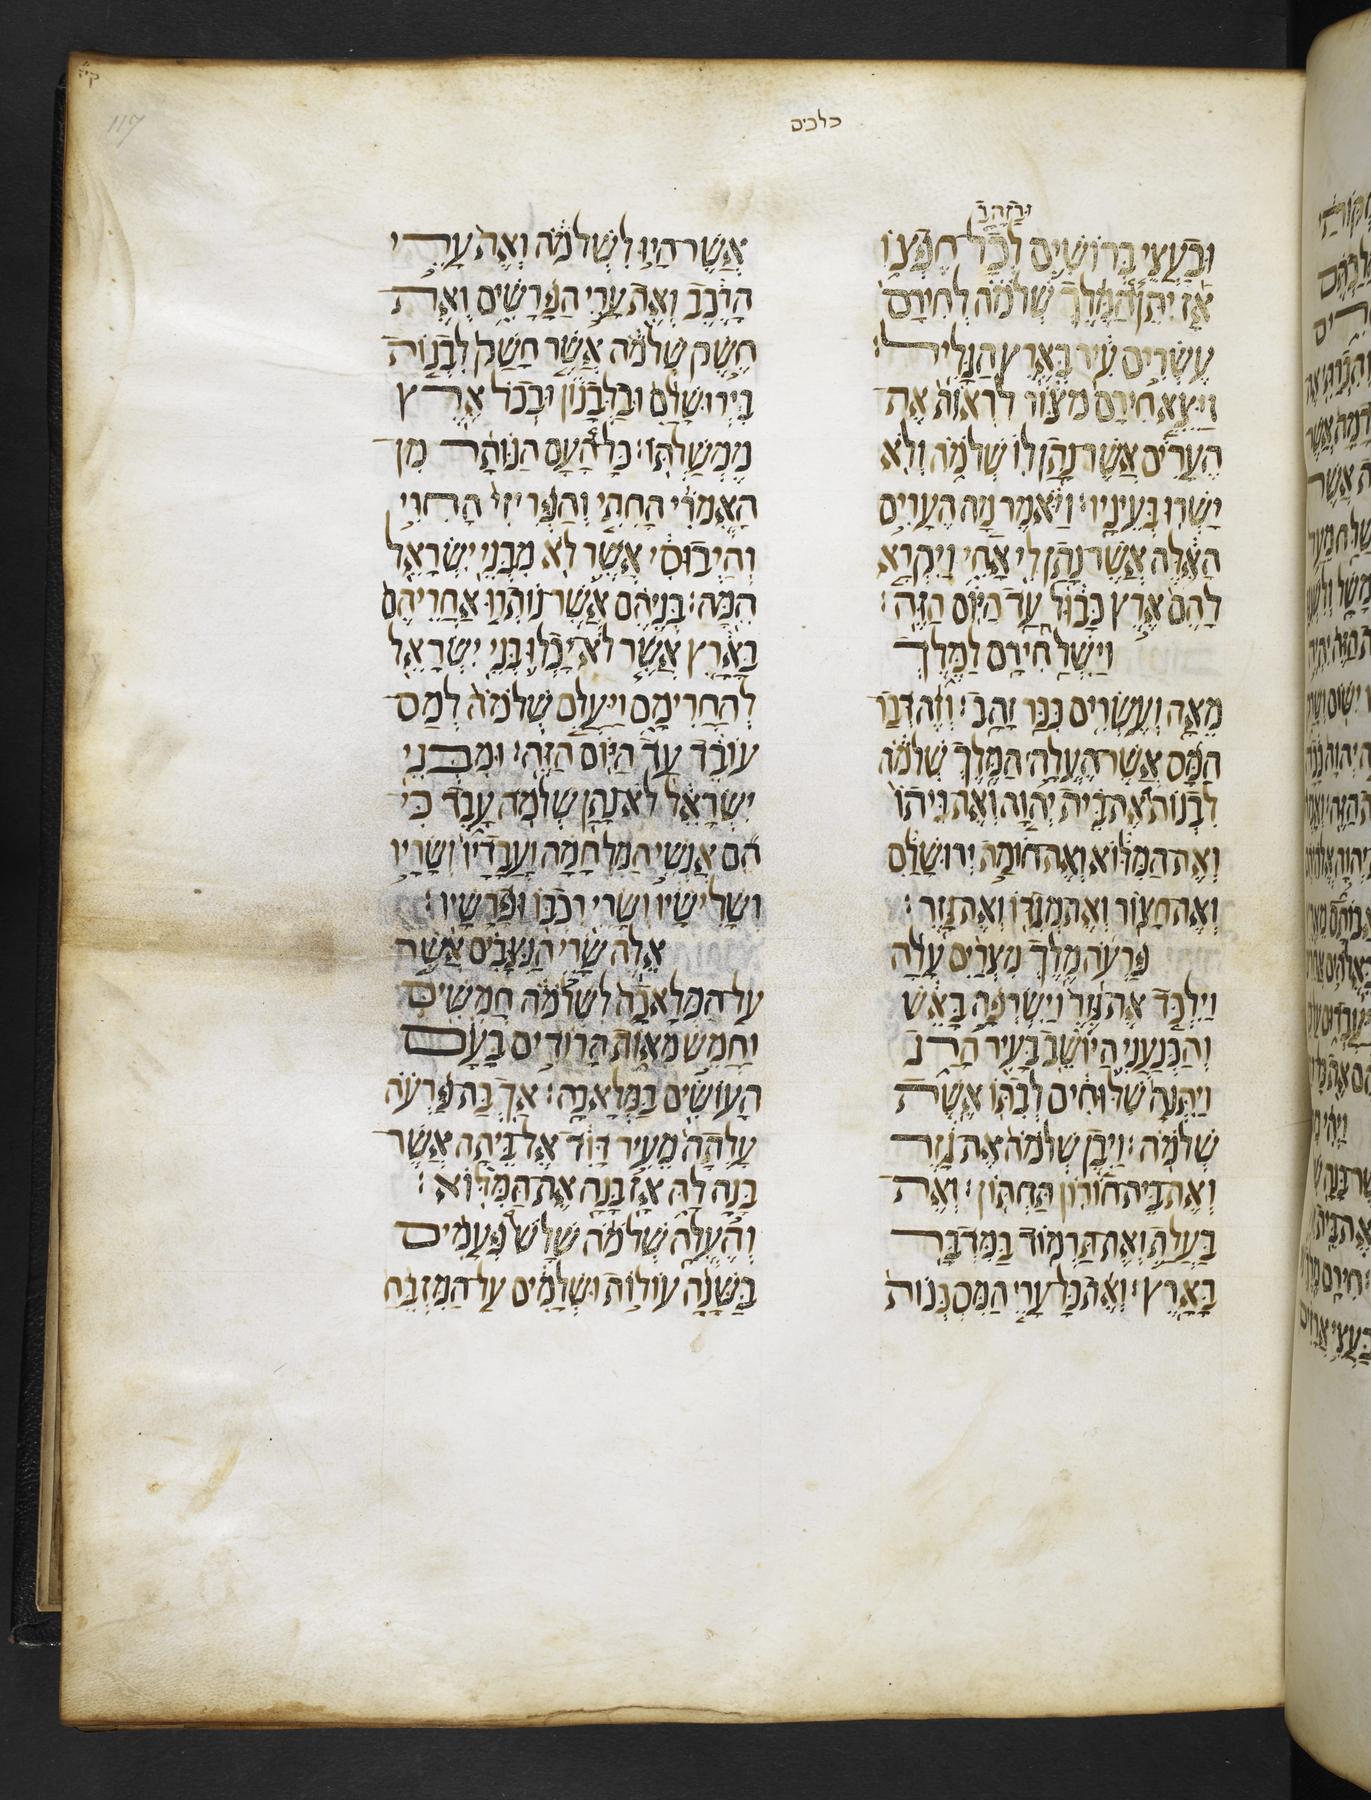 מלכים
ובזהב
ובעצי ברושים לכל חפצו
אז יתן המלך שלמה לחירם
עשרים עיר בארץ הגליל:
ויצא חירם מצור לראות את
הערים אשר נתן לו שלמה ולא
ישרו בעיניו: ויאמר מה הערים
האלה אשר נתת לי אחי ויקרא
להם ארץ כבול עד היום הזה:
וישלח חירם למלך
מאה ועשרים ככר זהב: וזה דבר
המס אשר העלה המלך שלמה
לבנות את בית יהוה ואת ביתו
ואת המלוא ואת חומת ירושלם
ואת חצור ואת מגדו ואת גזר:
פרעה מלך מצרים עלה
וילכד את גזר וישרפה באש
ואת הכנעני היושב בעיר הרג
ויתנה שלוחים לבתו אשת
שלמה: ויבן שלמה את גזר
ואת בית חורון תחתון: ואת
בעלת ואת תרמוד במדבר
בארץ: ואת כל ערי המסכנות
אשר היו לשלמה ואת ערי
הרכב ואת ערי הפרשים ואת
חשק שלמה אשר חשק לבנות
בירושלם ובלבנון ובכל ארץ
ממשלתו: כל העם הנותר מן
האמרי החתי והפריזי החוי
והיבוסי אשר לא מבני ישראל
המה: בניהם אשר נותרו אחריהם
בארץ אשר לא יכלו בני ישראל
להחרימם ויעלם שלמה למס
עובד עד היום הזה: ומבני
ישראל לא נתן שלמה עבד כי
הם אנשי המלחמה ועבדיו ושריו
ושלישיו ושרי רכבו ופרשיו:
אלה שרי הנצבים אשר
על המלאכה לשלמה חמשים
וחמש מאות הרודים בעם
העושים במלאכה: אך בת פרעה
עלתה מעיר דוד אל ביתה אשר
בנה לה אז בנה את המלוא:
והעלה שלמה שלש פעמים
בשנה עולות ושלמים על המזבח
קיז
117